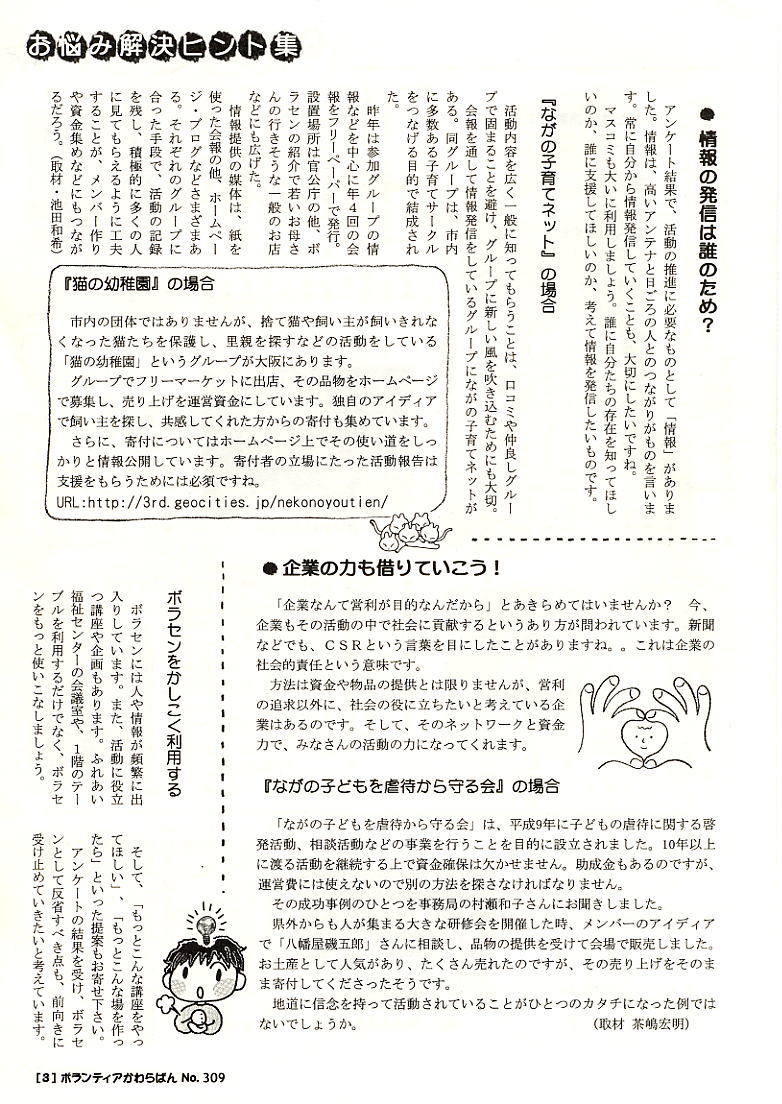 お悩み解決ヒント集
●情報の発信は誰のため？
アンケート結果で、活動の推進に必要なものとして「情報」がありま
した。情報は、高いアンテナと日ごろの人とのつながりがものを言いま
す。常に自分から情報発信していくことも、大切にしたいですね。
マスコミも大いに利用しましょう。誰に自分たちの存在を知ってほし
いのか、誰に支援してほしいのか、考えて情報を発信したいものです。
『ながの子育てネット』の場合
活動内容を広く一般に知ってもらうことは、口コミや仲良しグルー
プで固まることを避け、グループに新しい風を吹き込むためにも大切。
会報を通して情報発信をしているグループにながの子育てネットが
ある。同グループは、市内
に多数ある子育てサークル
をつなげる目的で結成され
た。
昨年は参加グループの情
報などを中心に年４回の会
報をフリーペーパーで発行。
設置場所は官公庁の他、ボ
ラセンの紹介で若いお母さ
んの行きそうな一般のお店
などにも広げた。
情報提供の媒体は、紙を
使った会報の他、ホームペー
ジ・ブログなどさまざまあ
る。それぞれのグループに
合った手段で、活動の記録
を残し、積極的に多くの人
に見てもらえるように工夫
することが、メンバー作り
や資金集めなどにもつなが
るだろう。（取材・池田和希）
『猫の幼稚園』の場合
市内の団体ではありませんが、捨て猫や飼い主が飼いきれな
くなった猫たちを保護し、里親を探すなどの活動をしている
「猫の幼稚園」というグループが大阪にあります。
グループでフリーマーケットに出店、その品物をホームページ
で募集し、売り上げを運営資金にしています。独自のアイディア
で飼い主を探し、共感してくれた方からの寄付も集めています。
さらに、寄付についてはホームページ上でその使い道をしっ
かりと情報公開しています。寄付者の立場にたった活動報告は
支援をもらうためには必須ですね。
URL:http://3rd.geocities.jp/nekonoyoutien/
●企業の力も借りていこう！
「企業なんて営利が目的なんだから」とあきらめてはいませんか？　今、
企業もその活動の中で社会に貢献するというあり方が問われています。新聞
などでも、ＣＳＲという言葉を目にしたことがありますね。。これは企業の
社会的責任という意味です。
方法は資金や物品の提供とは限りませんが、営利
の追求以外に、社会の役に立ちたいと考えている企
業はあるのです。そして、そのネットワークと資金
力で、みなさんの活動の力になってくれます。
『ながの子どもを虐待から守る会』の場合
「ながの子どもを虐待から守る会」は、平成9年に子どもの虐待に関する啓
発活動、相談活動などの事業を行うことを目的に設立されました。10年以上
に渡る活動を継続する上で資金確保は欠かせません。助成金もあるのですが、
運営費には使えないので別の方法を探さなければなりません。
その成功事例のひとつを事務局の村瀬和子さんにお聞きしました。
県外からも人が集まる大きな研修会を開催した時、メンバーのアイディア
で「八幡屋礒五郎」さんに相談し、品物の提供を受けて会場で販売しました。
お土産として人気があり、たくさん売れたのですが、その売り上げをそのま
ま寄付してくださったそうです。
地道に信念を持って活動されていることがひとつのカタチになった例では
ないでしょうか。　（取材 茶嶋宏明）
ボラセンをかしこく利用する
ボラセンには人や情報が頻繁に出
入りしています。また、活動に役立
つ講座や企画もあります。ふれあい
福祉センターの会議室や、１階のテー
ブルを利用するだけでなく、ボラセ
ンをもっと使いこなしましょう。
そして、「もっとこんな講座をやっ
てほしい」、「もっとこんな場を作っ
たら」といった提案もお寄せ下さい。
アンケートの結果を受け、ボラセ
ンとして反省すべき点も、前向きに
受け止めていきたいと考えています。
［３］ボランティアかわらばん No. 309